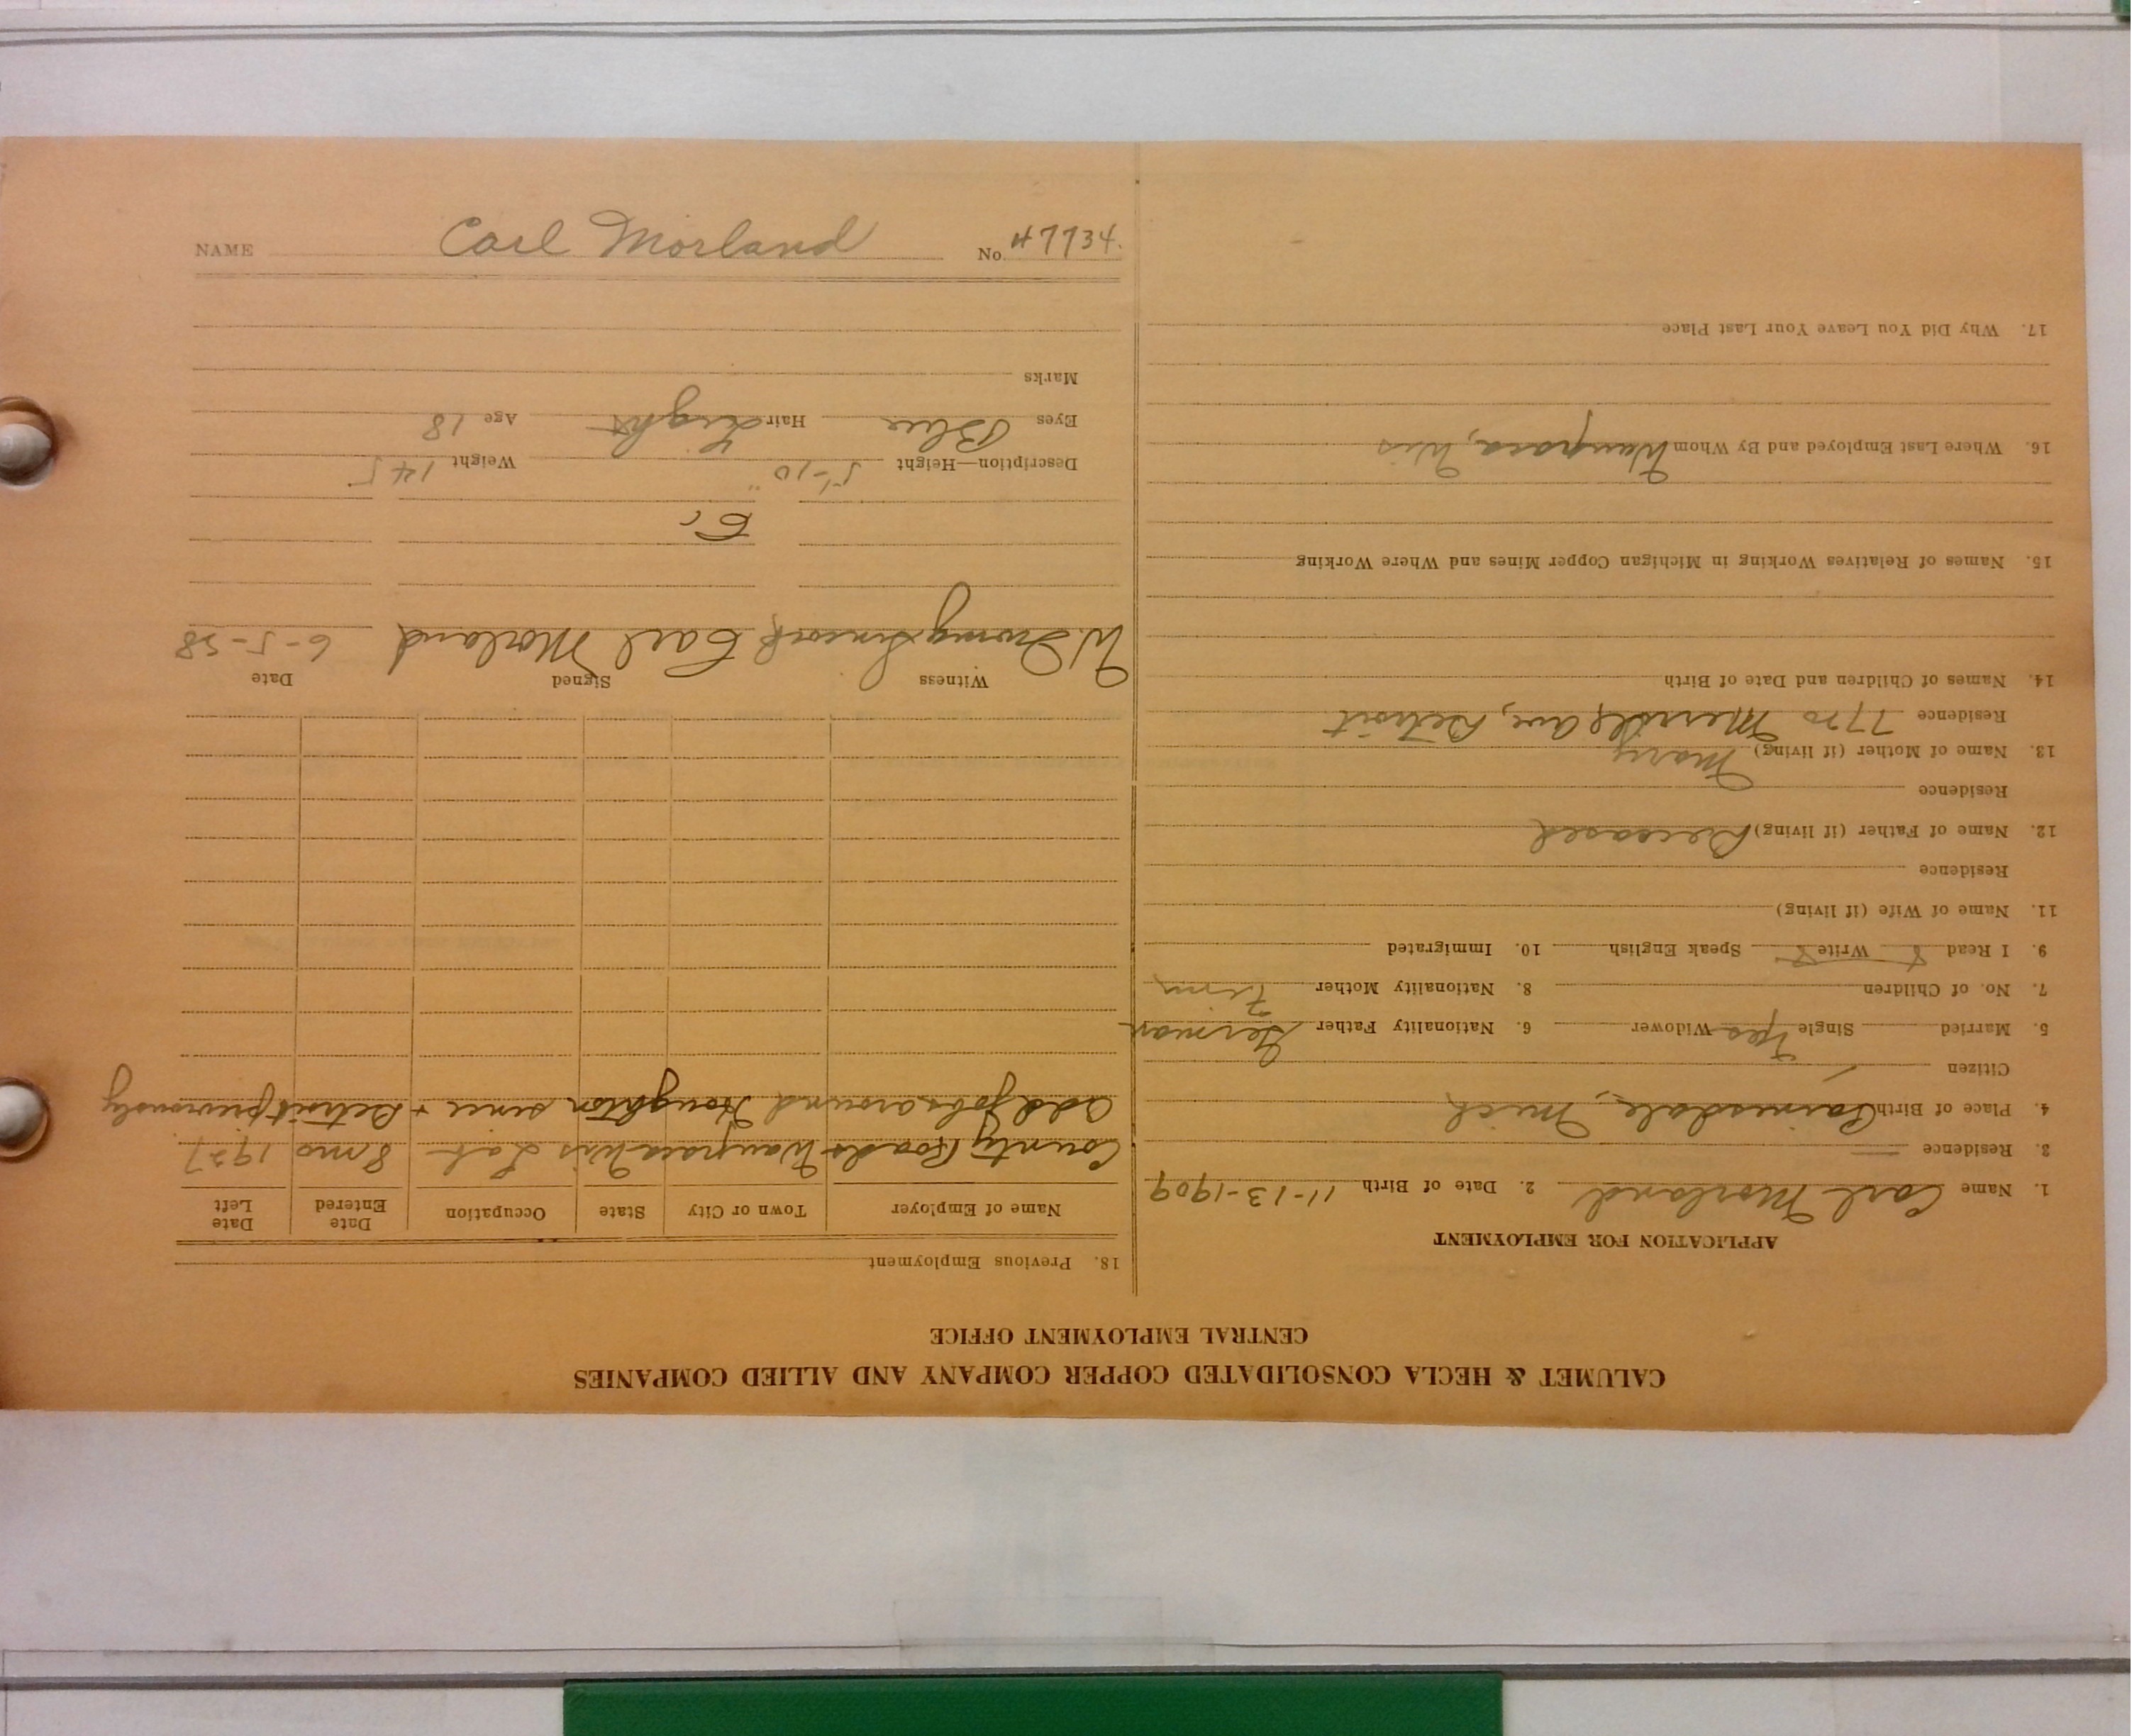 NAME Carl Morland No. 47734.
CALUMET & HECLA CONSOLIDATED COPPER COMPANY AND ALLIED COMPANIES
CENTRAL EMPLOYMENT OFFICE
APPLICATION FOR EMPLOYMENT
1. Name Carl Morland 2. Date of Birth 11-13-1909
3. Residence
4. Place of Birth Painesdale, Mich
Citizen
5. Married Single Yes Widower 6. Nationality Father German
7. No. of Children 8. Nationality Mother Finn
9. I Read Write Speak English 10. Immigrated
11. Name of Wife (if living)
Residence
12. Name of Father (if living) Deceased
Residence
13. Name of Mother (if living) Mary
Residence 7720 Ave, Detroit
14. Names of Children and Date of Birth
15. Names of Relatives Working in Michigan Copper Mines and Where Working
16. Where Last Employed and By Whom Waupaca, Wis
17. Why Did You Leave Your Last Place
18. Previous Employment
Name of Employer Town or City State Occupation Date Entered Date Left
County Roads Waupaca Wis Lab 8 mo 1927.
Odd jobs around Houghton since + Detroit previously
Witness Signed Date
W. Carl Morland 6-5-28
Description—Height 5'-10" Weight 145
Eyes Blue Hair Light Age 18
Marks